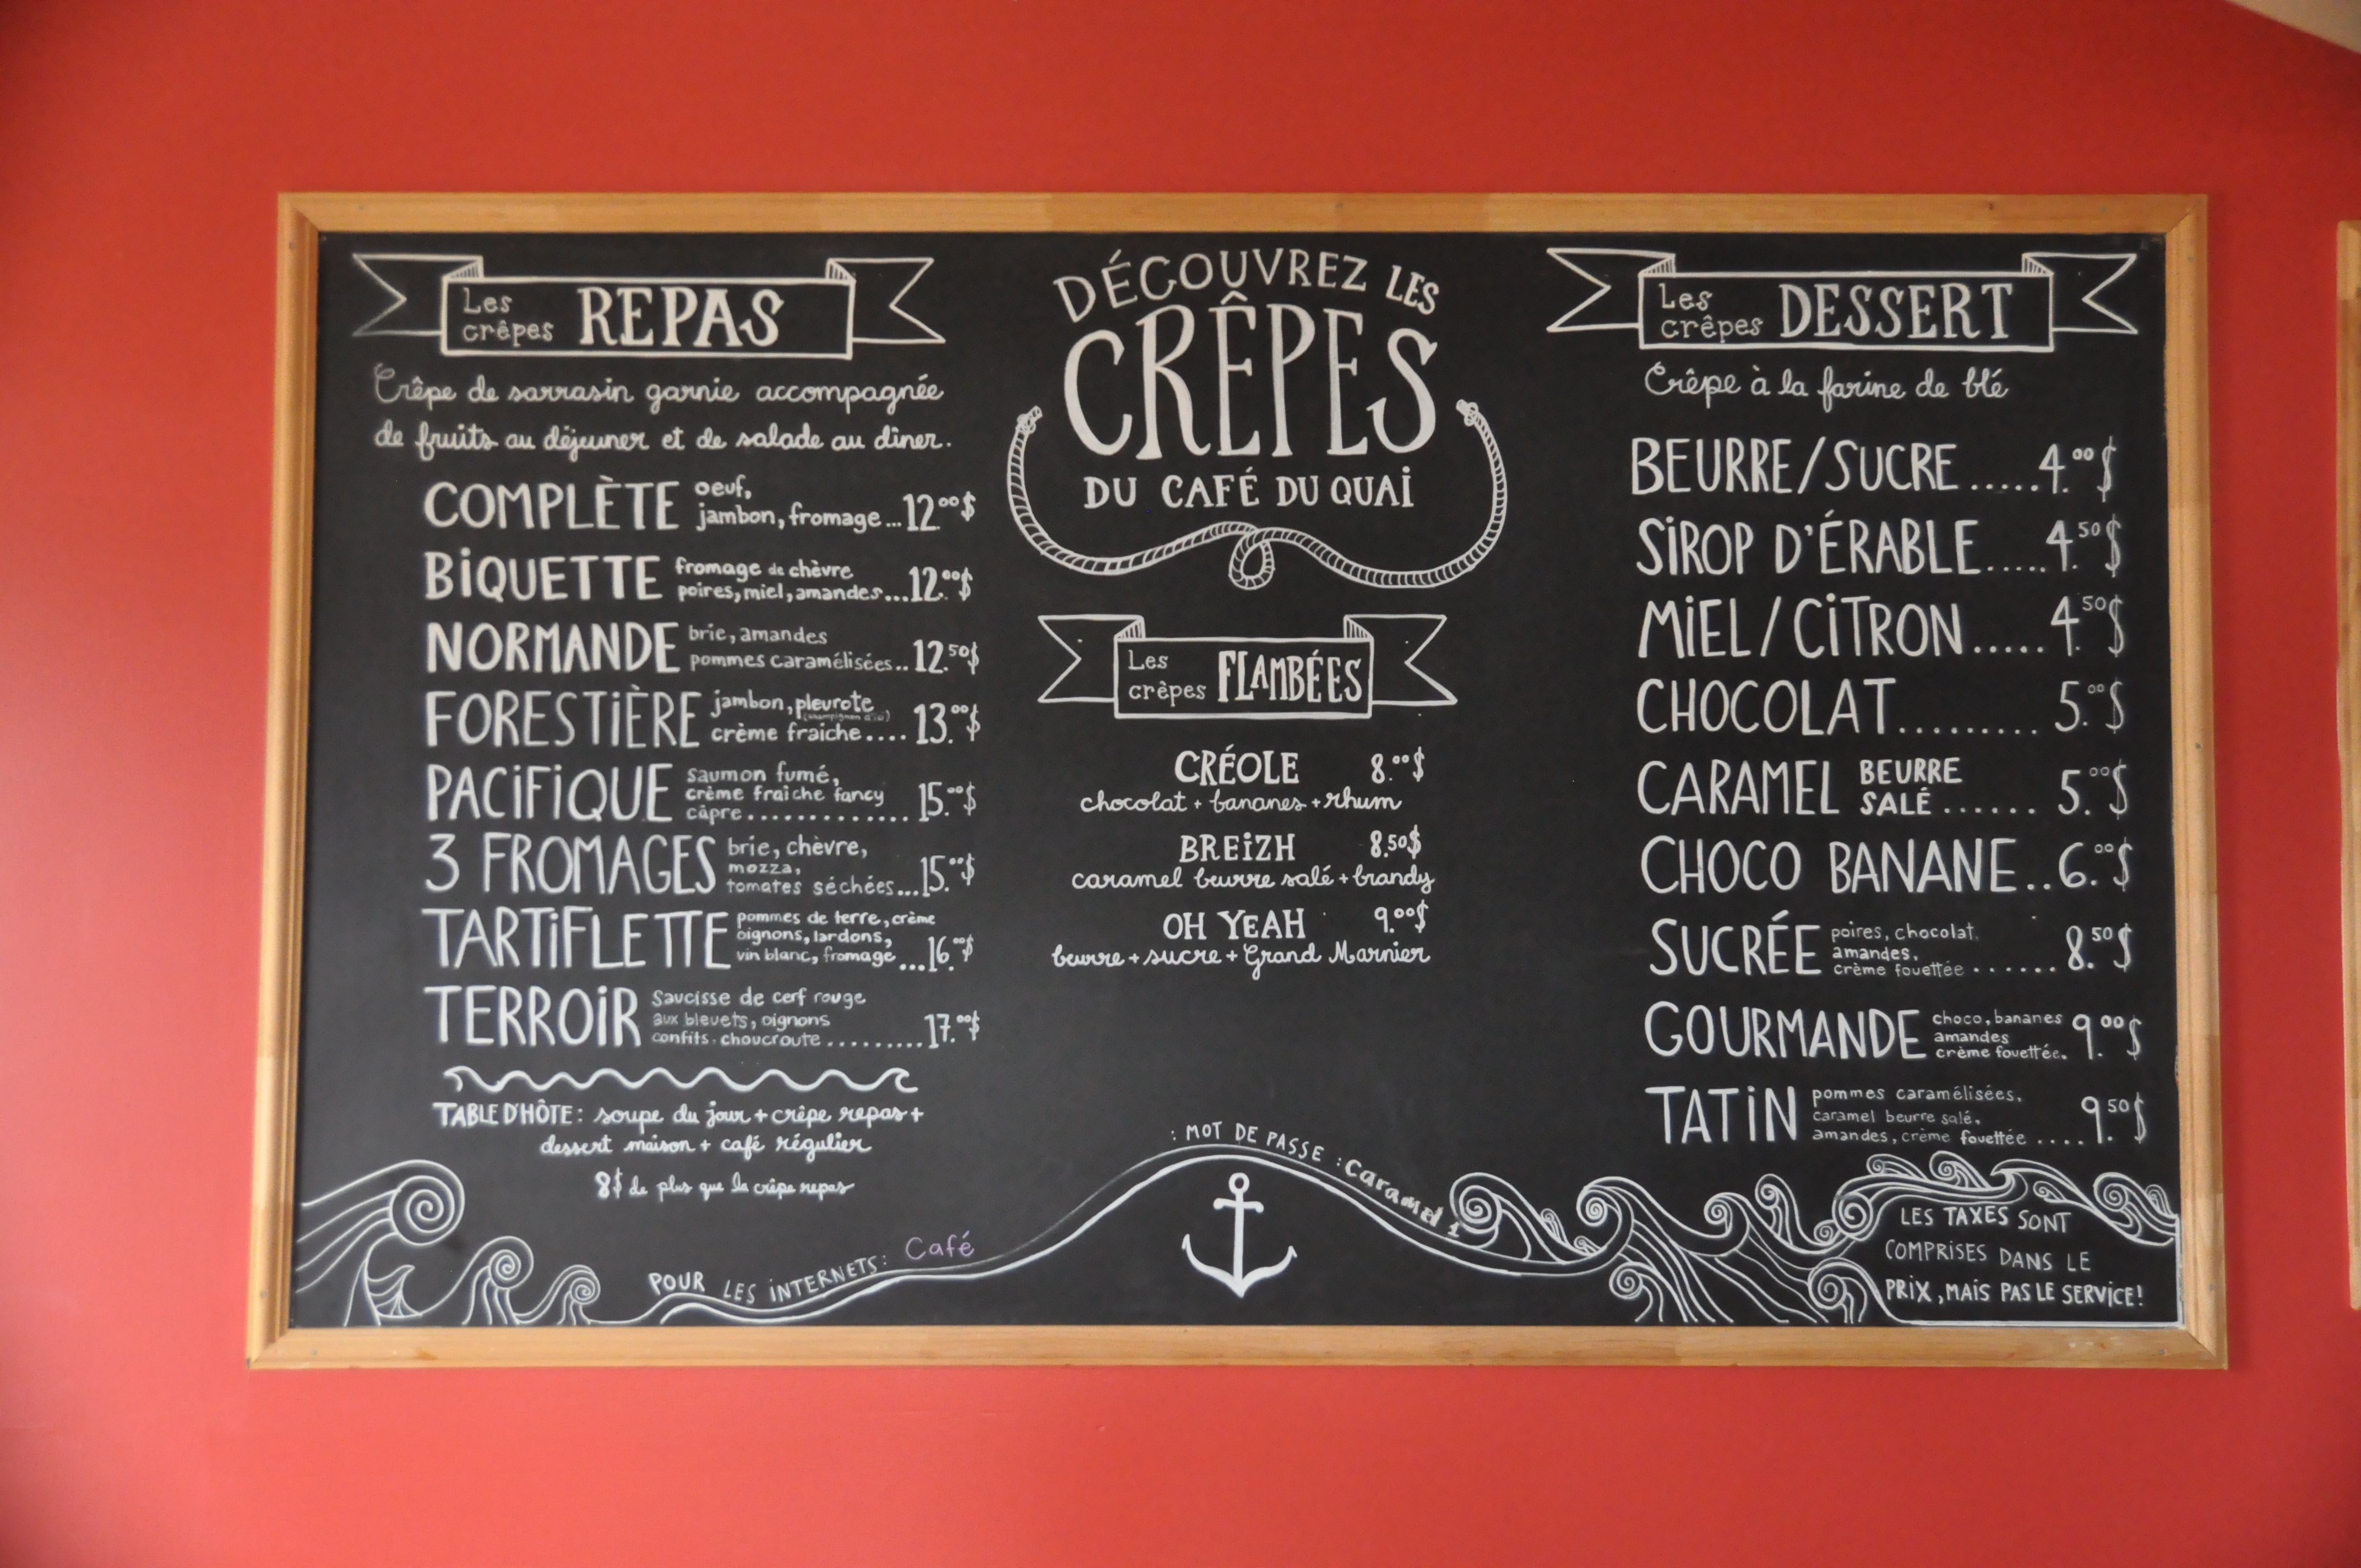 Les crêpes REPAS
Crêpe de sarrasin garnie accompagnée
de fruits au déjeuner et de salade au dîner.
COMPLÈTE oeuf,
jambon, fromage ... 12.00$
BIQUETTE fromage de chèvre
poires, miel, amandes ... 12.00$
NORMANDE brie, amandes
pommes caramélisées .. 12.50$
FORESTIÈRE jambon, pleurote
crème fraiche .... 13.00$
PACIFIQUE saumon fumé,
crème fraîche fancy
câpre ............. 15.00$
3 FROMAGES brie, chèvre,
mozza,
tomates séchées ... 15.00$
TARTIFLETTE pommes de terre, crème
oignons, lardons,
vin blanc, fromage ... 16.00$
TERROIR Saucisse de cerf rouge
aux bleuets, oignons
confits. choucroute ......... 17.00$
TABLE D'HÔTE: soupe du jour + crêpe repas +
dessert maison + café régulier
8$ de plus que la crêpe repas
DÉCOUVREZ LES
CRÊPES
DU CAFÉ DU QUAI
Les crêpes FLAMBÉES
CRÉOLE 8.00$
chocolat + bananes + rhum
BREIZH 8.50$
caramel beurre salé + brandy
OH YEAH 9.00$
beurre + sucre + Grand Marnier
Les crêpes DESSERT
Crêpe à la farine de blé
BEURRE/SUCRE ..... 4.00$
SIROP D'ÉRABLE ..... 4.50$
MIEL/CITRON ..... 4.50$
CHOCOLAT ......... 5.00$
CARAMEL BEURRE
SALÉ ...... 5.00$
CHOCO BANANE .. 6.00$
SUCRÉE poires, chocolat,
amandes,
crème fouettée ...... 8.50$
GOURMANDE choco, bananes
amandes
crème fouettée. 9.00$
TATIN pommes caramélisées,
caramel beurre salé,
amandes, crème fouettée .... 9.50$
POUR LES INTERNETS: Café
: MOT DE PASSE : Caramel 1
LES TAXES SONT
COMPRISES DANS LE
PRIX, MAIS PAS LE SERVICE!